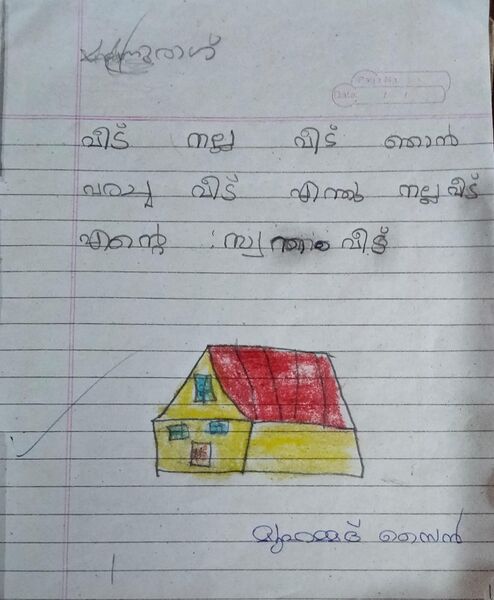 Page No:
Date: / /
വീട് നല്ല വീട് ഞാൻ
വരച്ച വീട് എന്തു നല്ല വീട്
എന്റെ സ്വന്തം വീട്
മുഹമ്മദ് സൈൻ